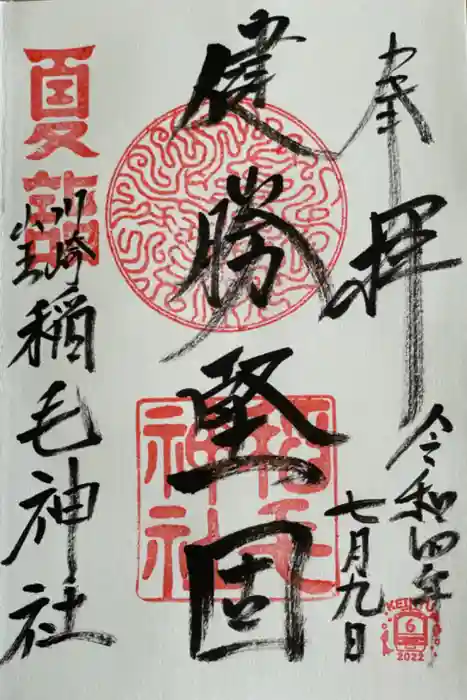 奉拝
令和四年
七月九日
健勝堅固
夏詣
川崎
稲毛神社
稲毛神社
KEIKYU
6
2022